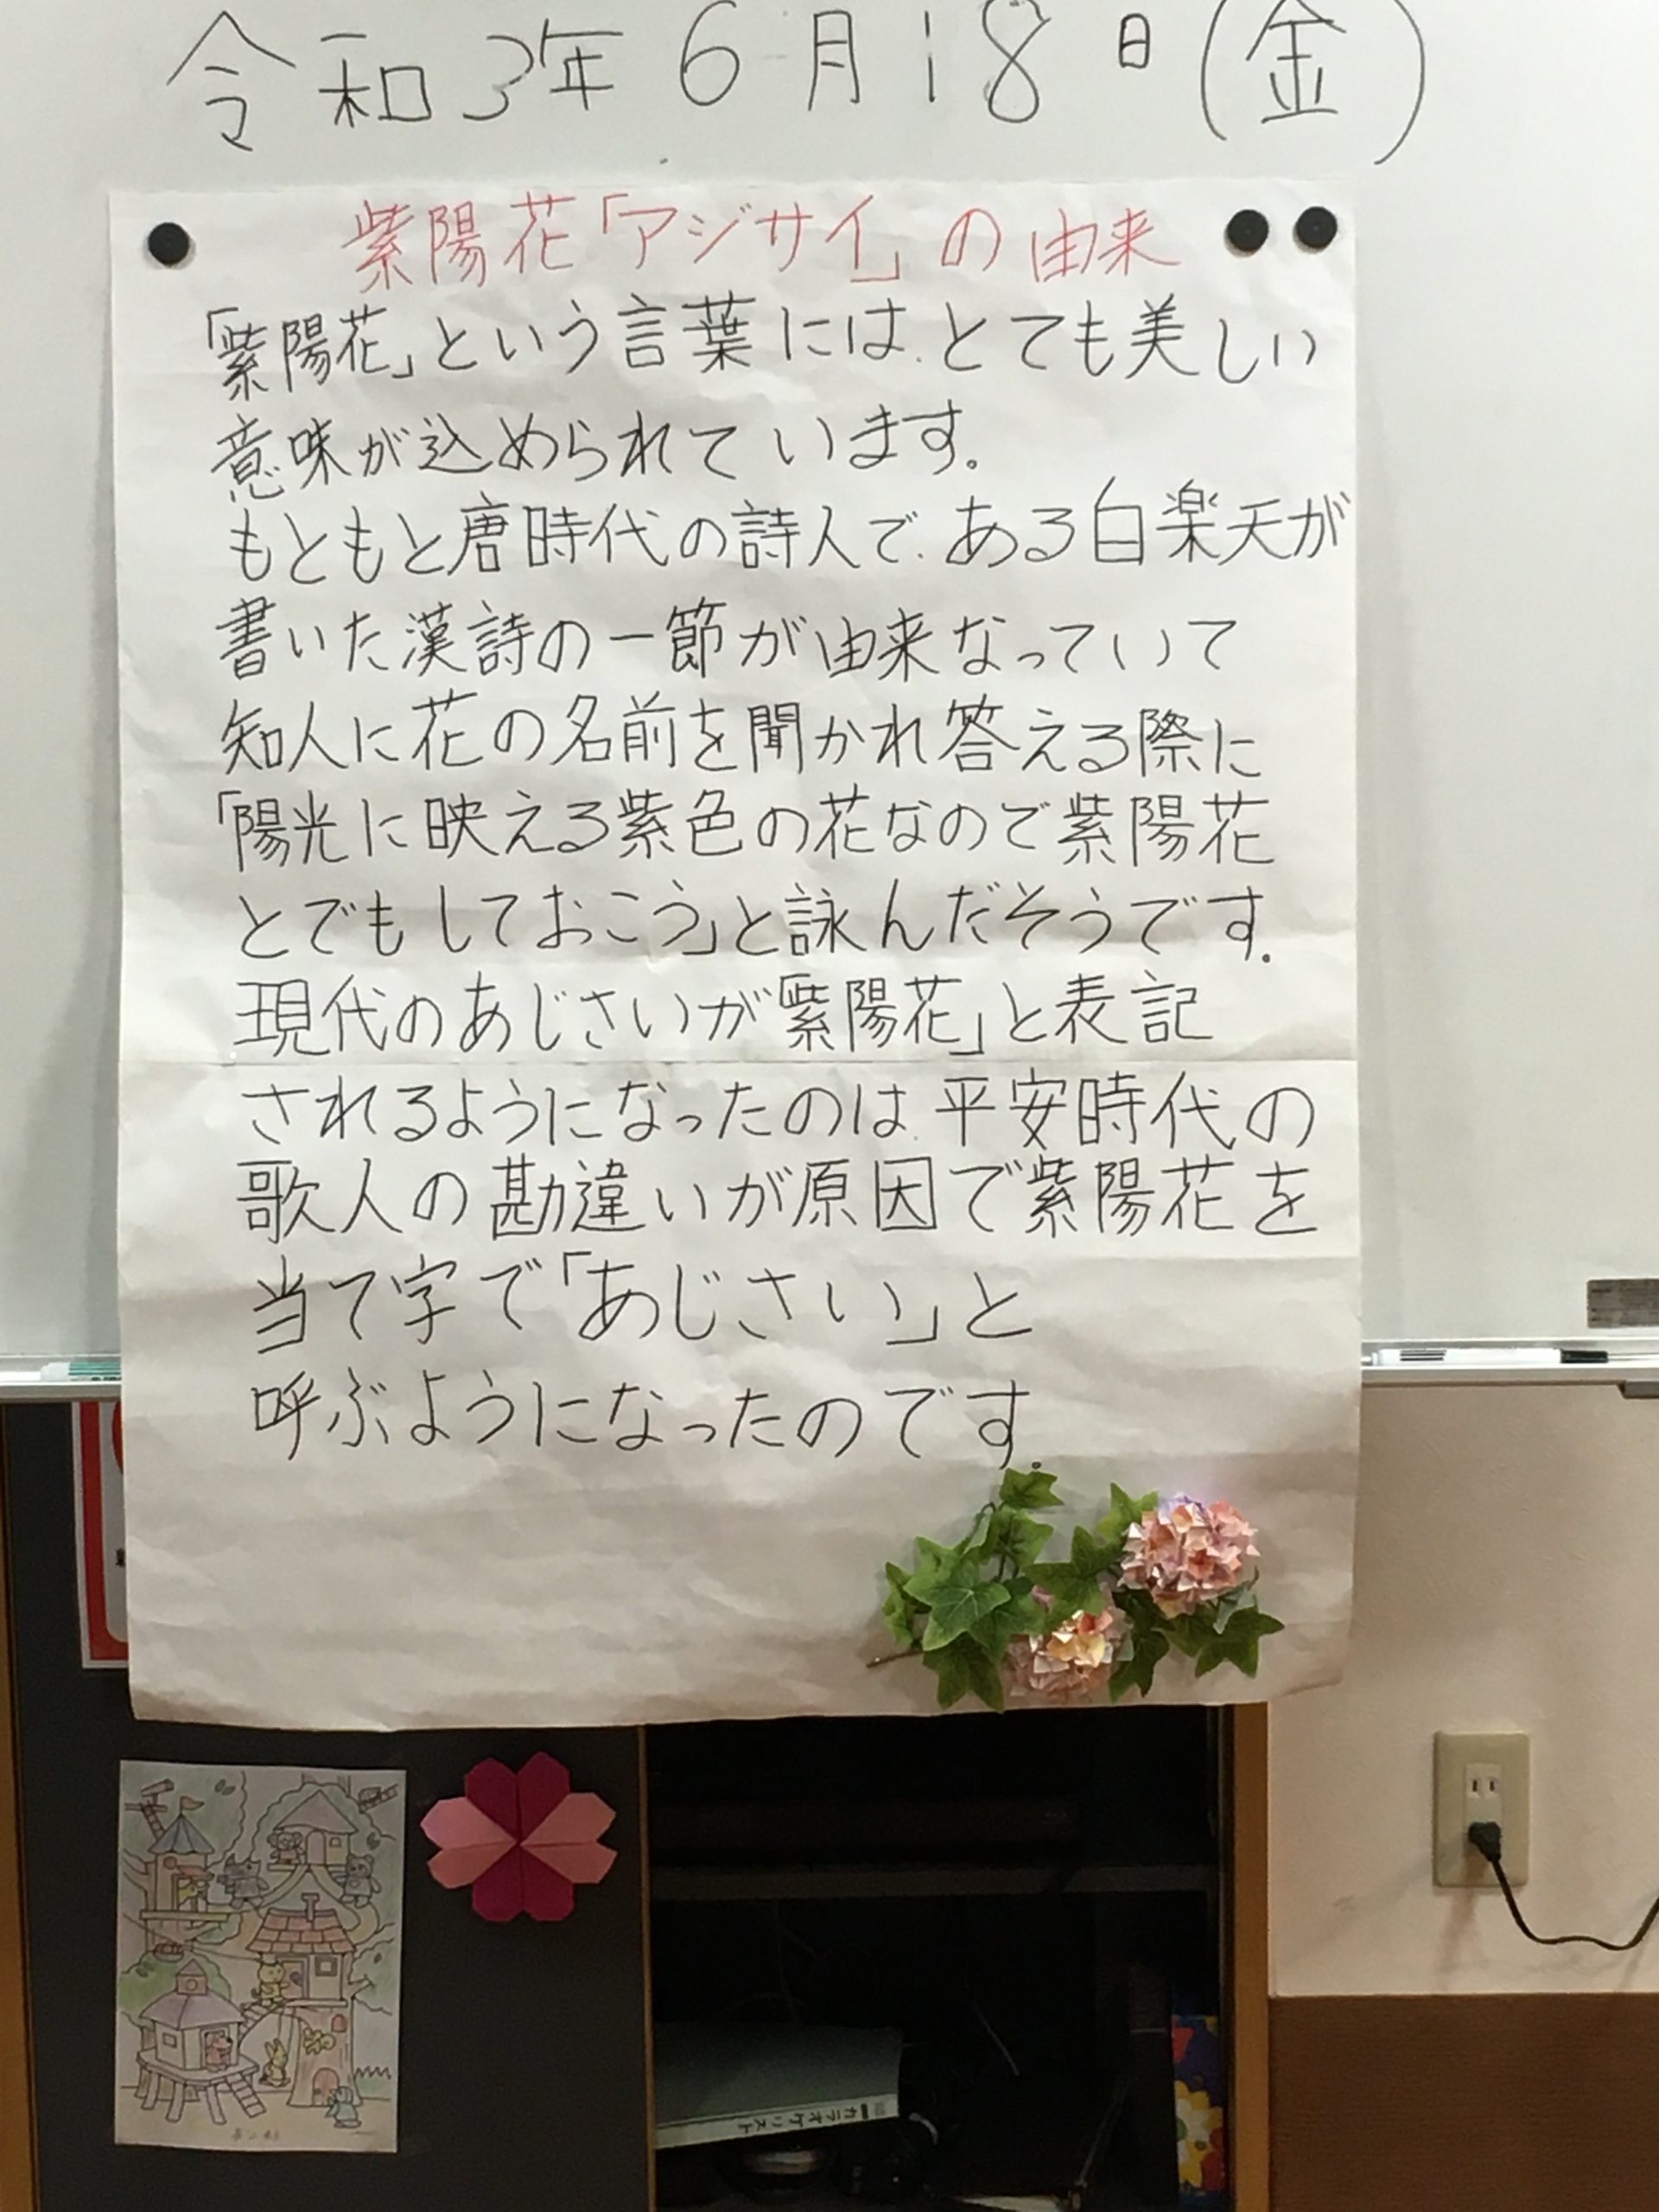 令和3年6月18日(金)
紫陽花「アジサイ」の由来
「紫陽花」という言葉には、とても美しい
意味が込められています。
もともと唐時代の詩人で、ある白楽天が
書いた漢詩の一節が由来なっていて
知人に花の名前を聞かれ答える際に
「陽光に映える紫色の花なので紫陽花
とでもしておこう」と詠んだそうです。
現代のあじさいが「紫陽花」と表記
されるようになったのは、平安時代の
歌人の勘違いが原因で紫陽花を
当て字で「あじさい」と
呼ぶようになったのです。
カラオケリスト